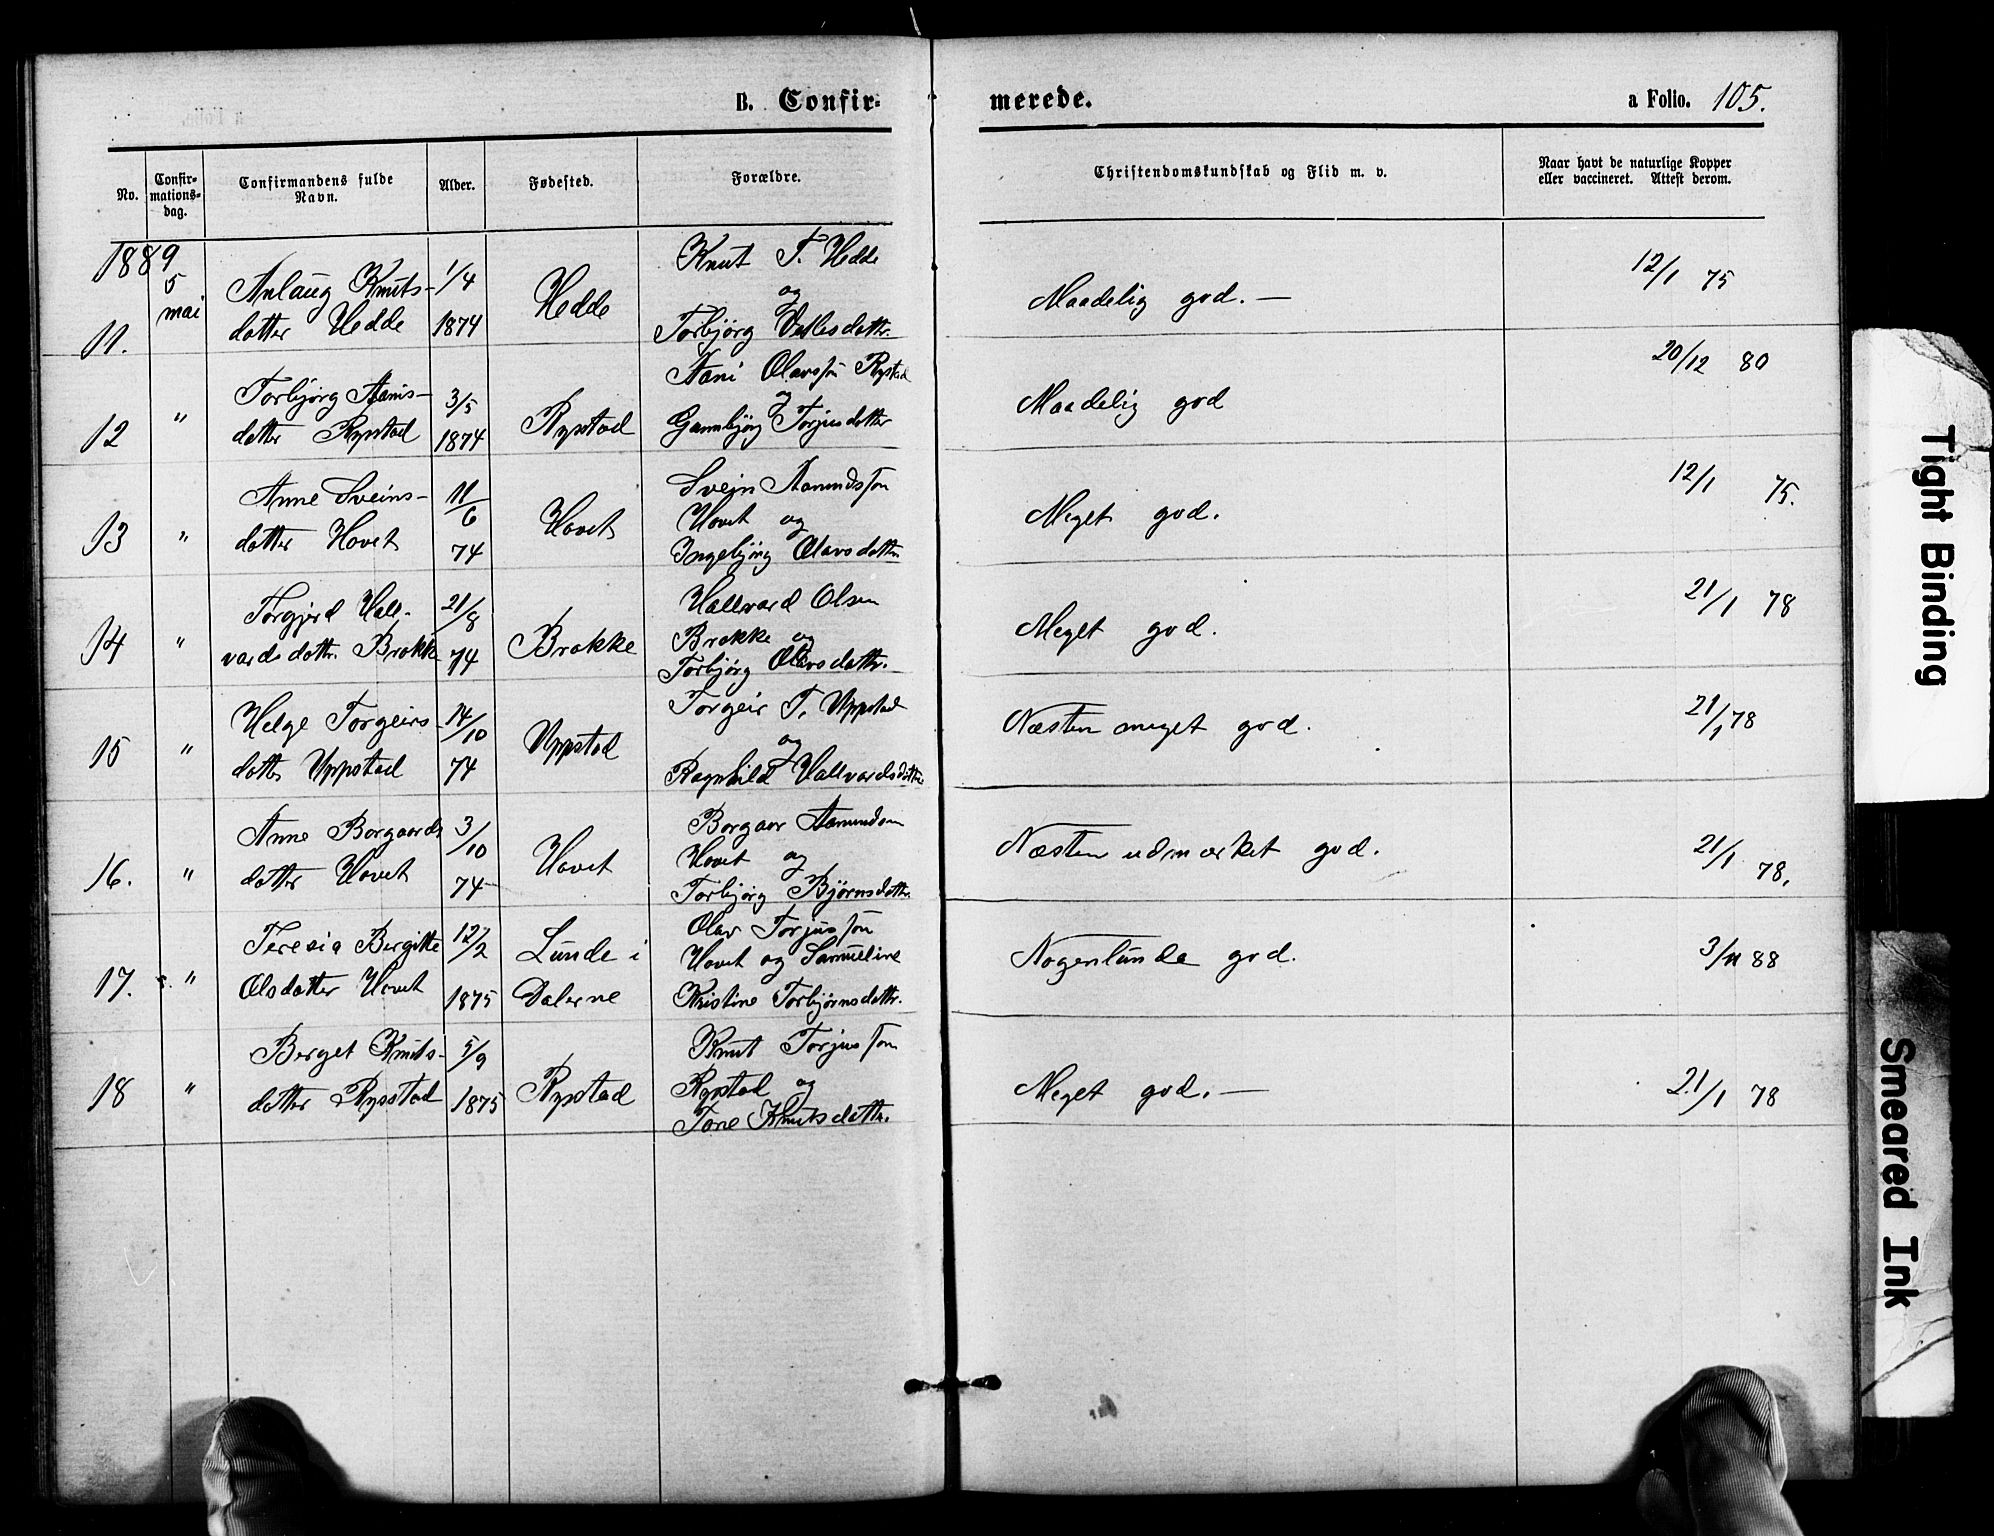 B. Confir-
merede.
a Folio. 105.
No.
Confir-
mations-
dag.
Confirmandens fulde
Navn.
Alder.
Fødested.
Forældre.
Christendomskundskab og Flid m. v.
Naar havt de naturlige Kopper
eller vaccineret. Attest derom.
1889
11.
5
mai
Anlaug Knuts-
datter Hedde
1/4
1874
Hedde
Knut T. Hedde
og
Torbjørg Vetlesdattr.
Maadelig god. —
12/1 75
12
"
Torbjørg Aanis-
datter Rystad
3/5
1874
Rystad
Aani Olavsson Rystad
og
Gunnbjørg Torjusdatter
Maadelig god
20/12 80
13
"
Anne Sveins-
datter Hovet
11/6
74
Hovet
Svein Aamundsson
Hovet og
Ingebjørg Olavsdatter
Meget god.
12/1 75.
14
"
Torgjerd Hall-
vardsdattr. Brokke
21/8
74
Brokke
Hallvard Olsen
Brokke og
Torbjørg Olavsdattr.
Meget god.
21/1 78
15
"
Helge Torgeirs-
datter Uppstad
14/10
74
Uppstad
Torgeir T. Uppstad
og
Ragnhild Hallvardsdatter
Næsten meget god.
21/1 78
16.
"
Anne Borgaards
datter Hovet
3/10
74
Hovet
Borgaar Aamundson
Hovet og
Torbjørg Bjørnsdattr.
Næsten udmærket god.
21/1 78.
17.
"
Teresia Bergitte
Olsdatter Hovet
12/2
1875
Lunde i
Dalerne
Olav Torjusson
Hovet og Samueline
Kristine Torbjørnsdattr.
Nogenlunde god.
3/11 88
18
"
Berget Knuts-
datter Rysstad
5/9
1875
Rystad
Knut Torjusson
Rystad og
Tone Knutsdattr.
Meget god. —
21/1 78
Tight Binding
Smeared Ink